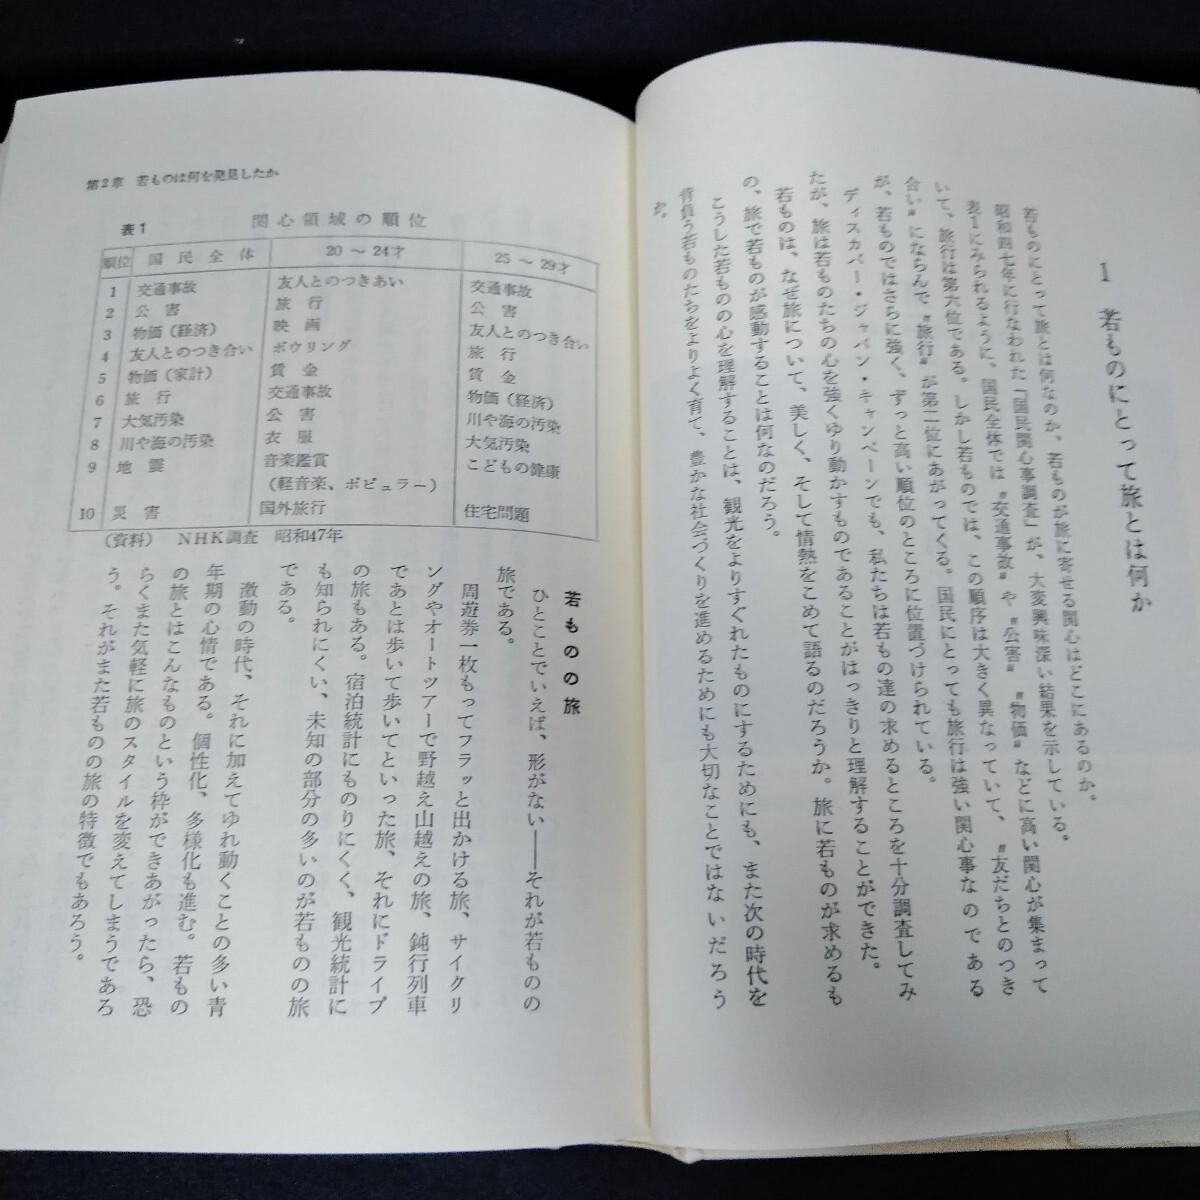 1 若ものにとって旅とは何か
若ものにとって旅とは何なのか、若ものが旅に寄せる関心はどこにあるのか。
昭和四七年に行なわれた「国民関心事調査」が、大変興味深い結果を示している。
表1にみられるように、国民全体では〝交通事故〟や〝公害〟〝物価〟などに高い関心が集まって
いて、旅行は第六位である。しかし若ものでは、この順序は大きく異なっていて、〝友だちとのつき
合い〟にならんで〝旅行〟が第二位にあがってくる。国民にとっても旅行は強い関心事なのである
が、若ものではさらに強く、ずっと高い順位のところに位置づけられている。
ディスカバー・ジャパン・キャンペーンでも、私たちは若もの達の求めるところを十分調査してみ
たが、旅は若ものたちの心を強くゆり動かすものであることがはっきりと理解することができた。
若ものは、なぜ旅について、美しく、そして情熱をこめて語るのだろうか。旅に若ものが求めるも
の、旅で若ものが感動することは何なのだろう。
こうした若ものの心を理解することは、観光をよりすぐれたものにするためにも、また次の時代を
背負う若ものたちをよりよく育て、豊かな社会づくりを進めるためにも大切なことではないだろう
か。
第2章 若ものは何を発見したか
表1 関心領域の順位
順位 国民全体 20～24才 25～29才
1 交通事故 友人とのつきあい 交通事故
2 公害 旅行 公害
3 物価(経済) 映画 友人とのつき合い
4 友人とのつき合い ボウリング 旅行
5 物価(家計) 賃金 賃金
6 旅行 交通事故 物価(経済)
7 大気汚染 公害 川や海の汚染
8 川や海の汚染 衣服 大気汚染
9 地震 音楽鑑賞 こどもの健康
(軽音楽、ポピュラー)
10 災害 国外旅行 住宅問題
(資料) NHK調査 昭和47年
若ものの旅
ひとことでいえば、形がない――それが若ものの
旅である。
周遊券一枚もってフラッと出かける旅、サイクリ
ングやオートツアーで野越え山越えの旅、鈍行列車
であとは歩いて歩いてといった旅、それにドライブ
の旅もある。宿泊統計にものりにくく、観光統計に
も知られにくい、未知の部分の多いのが若ものの旅
である。
激動の時代、それに加えてゆれ動くことの多い青
年期の心情である。個性化、多様化も進む。若もの
の旅とはこんなものという枠ができあがったら、恐
らくまた気軽に旅のスタイルを変えてしまうであろ
う。それがまた若ものの旅の特徴でもあろう。